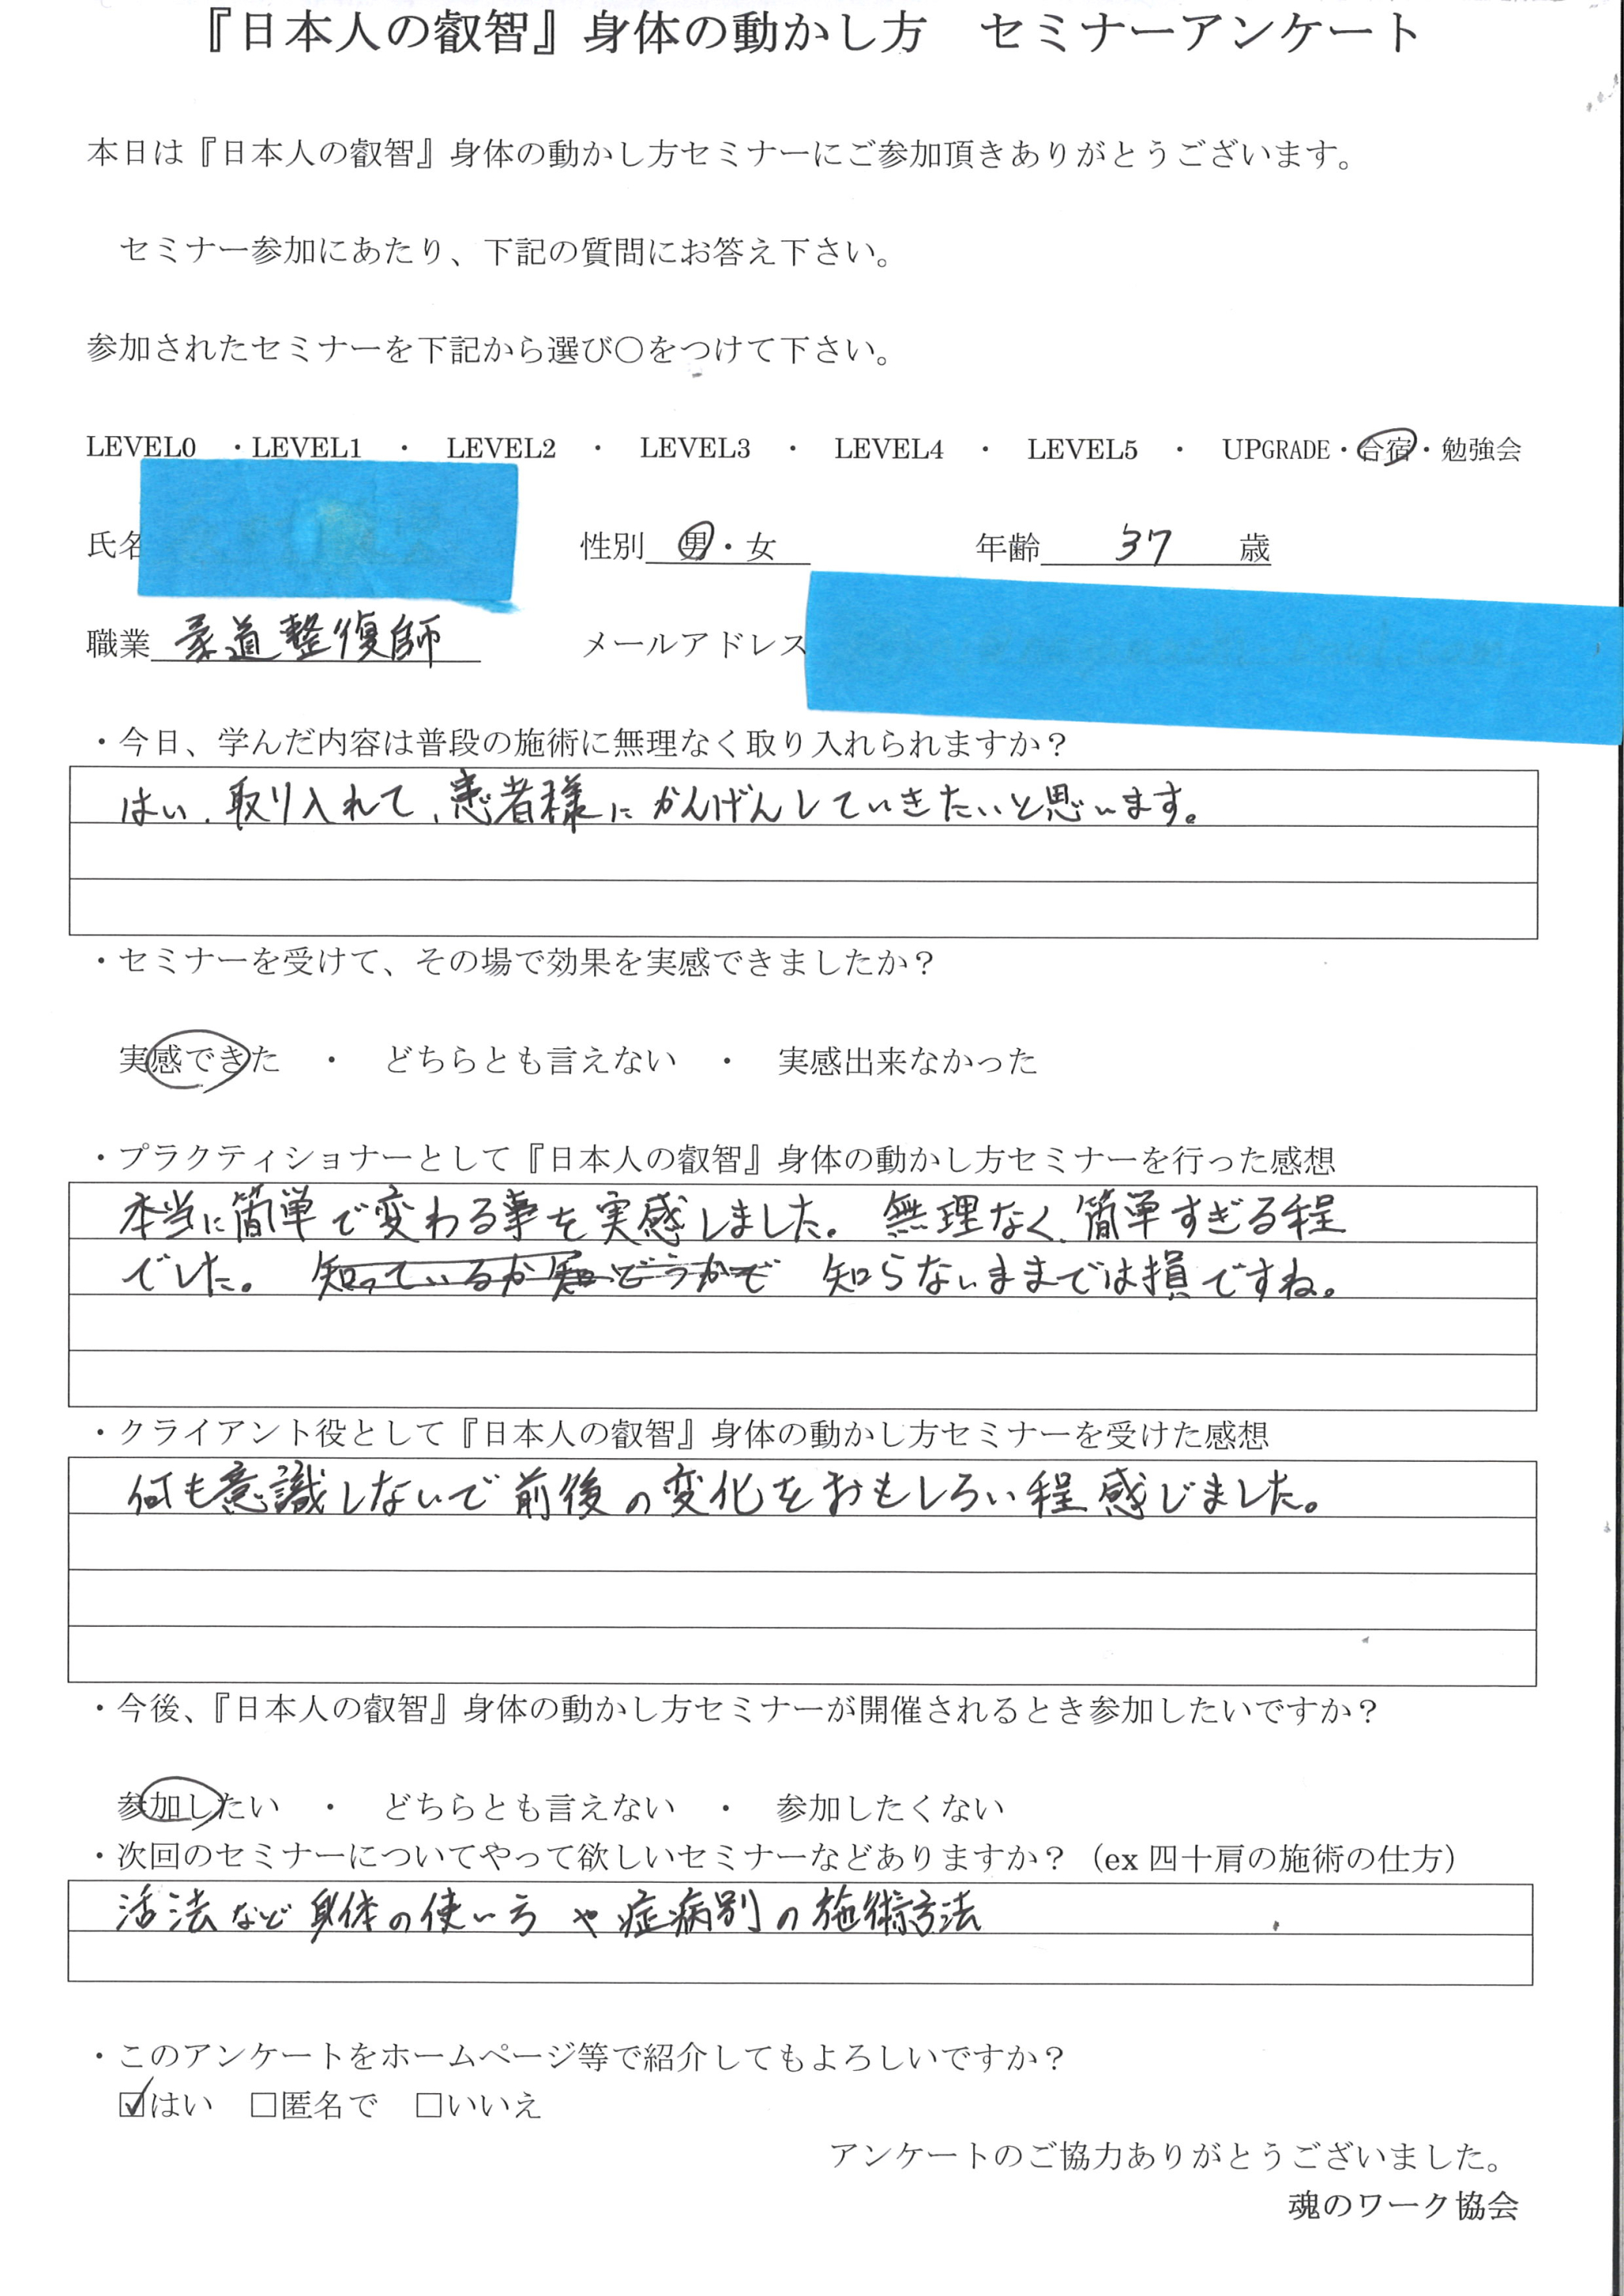 『日本人の叡智』身体の動かし方　セミナーアンケート
本日は『日本人の叡智』身体の動かし方セミナーにご参加頂きありがとうございます。
セミナー参加にあたり、下記の質問にお答え下さい。
参加されたセミナーを下記から選び〇をつけて下さい。
LEVEL0 ・LEVEL1 ・ LEVEL2 ・ LEVEL3 ・ LEVEL4 ・ LEVEL5 ・ UPGRADE・合宿・勉強会
氏名 性別 男・女 年齢 37 歳
職業 柔道整復師 メールアドレス
・今日、学んだ内容は普段の施術に無理なく取り入れられますか？
はい、取り入れて、患者様にかんげんしていきたいと思います。
・セミナーを受けて、その場で効果を実感できましたか？
実感できた ・ どちらとも言えない ・ 実感出来なかった
・プラクティショナーとして『日本人の叡智』身体の動かし方セミナーを行った感想
本当に簡単で変わる事を実感しました。無理なく、簡単すぎる程
でした。 知っているか知どうかで 知らないままでは損ですね。
・クライアント役として『日本人の叡智』身体の動かし方セミナーを受けた感想
何も意識しないで前後の変化をおもしろい程感じました。
・今後、『日本人の叡智』身体の動かし方セミナーが開催されるとき参加したいですか？
参加したい ・ どちらとも言えない ・ 参加したくない
・次回のセミナーについてやって欲しいセミナーなどありますか？（ex 四十肩の施術の仕方）
活法など身体の使い方や症病別の施術方法
・このアンケートをホームページ等で紹介してもよろしいですか？
☑はい □匿名で □いいえ
アンケートのご協力ありがとうございました。
魂のワーク協会